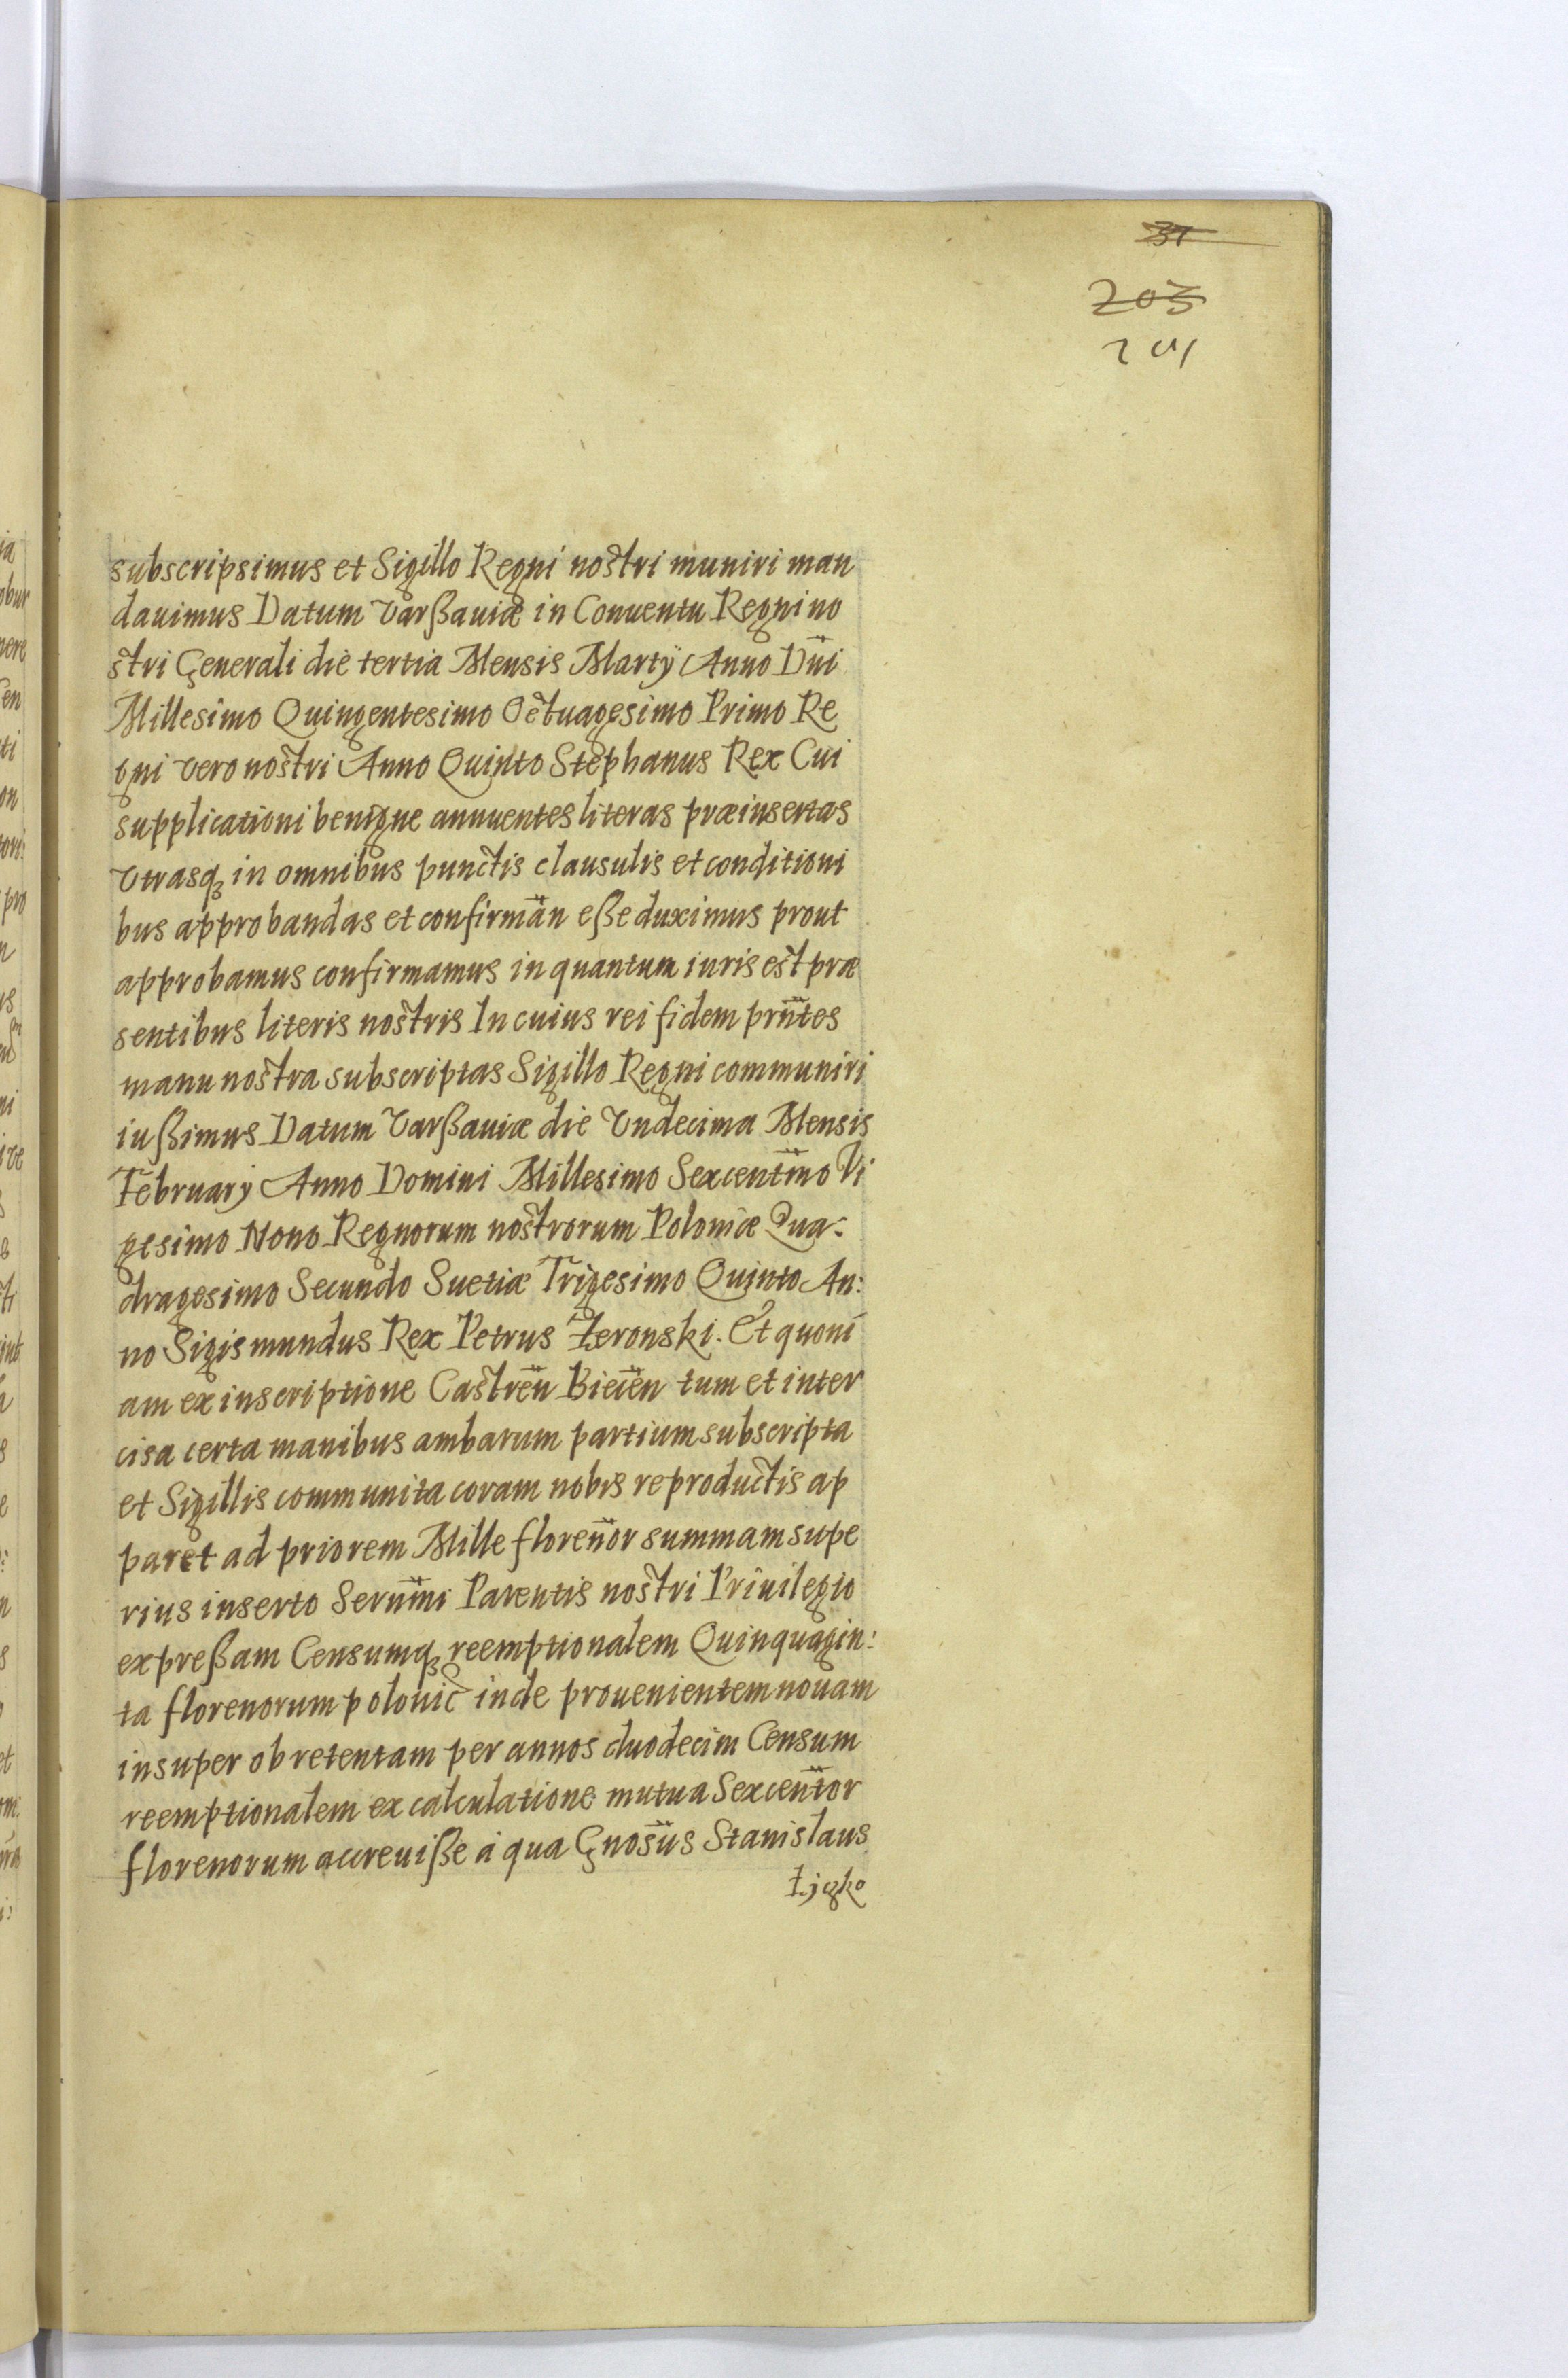 31
203
201
subscripsimus et Sigillo Regni nostri muniri man
dauimus Datum Varßauiæ in Conuentu Regni no
stri Generali die tertia Mensis Martÿ Anno Dñi
Millesimo Quingentesimo Octuagesimo Primo Re
gni vero nostri Anno Quinto Stephanus Rex Cui
supplicationi benigne annuentes literas præinsertas
Vtrasqꝫ in omnibus punctis clausulis et conditioni
bus approbandas et confirmãn eße duximus prout
approbamus confirmamus in quantum iuris est præ
sentibus literis nostris In cuius rei fidem prñtes
manu nostra subscriptas Sigillo Regni communiri
iußimus Datum Varßauiæ die Vndecima Mensis
February Anno Domini Millesimo Sexcentm̃o Vi
gesimo Nono Regnorum nostrorum Poloniæ Qua:
dragesimo Secundo Suetiæ Trigesimo Quinto An:
no Sigismundus Rex Petrus Żeronski. Et quoni
am ex inscriptione Castreñ Biecen̄ tum et inter
cisa certa manibus ambarum partium subscripta
et Sigillis communita coram nobis reproductis ap
paret ad priorem Mille floreñor summam supe
rius inserto Serñmi Parentis nostri Priuilegio
expreßam Censumqꝫ reemptionalem Quinquagin:
ta florenorum polonic̃ inde prouenientem nouam
insuper ob retentam per annos duodecim Censum
reemptionalem ex calculatione mutua Sexcent̃or
florenorum accreuiße a qua Gnosũs Stanislaus